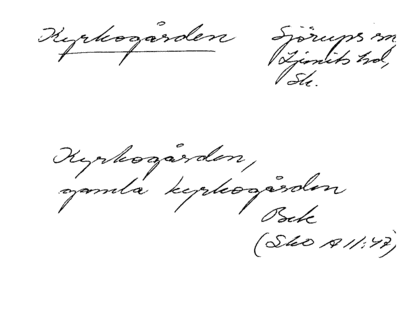 Kyrkogården Sjörups sn,
Ljunits hd,
Sk.
Kyrkogården,
gamla kyrkogården
Bek
(SkO A 11:47)